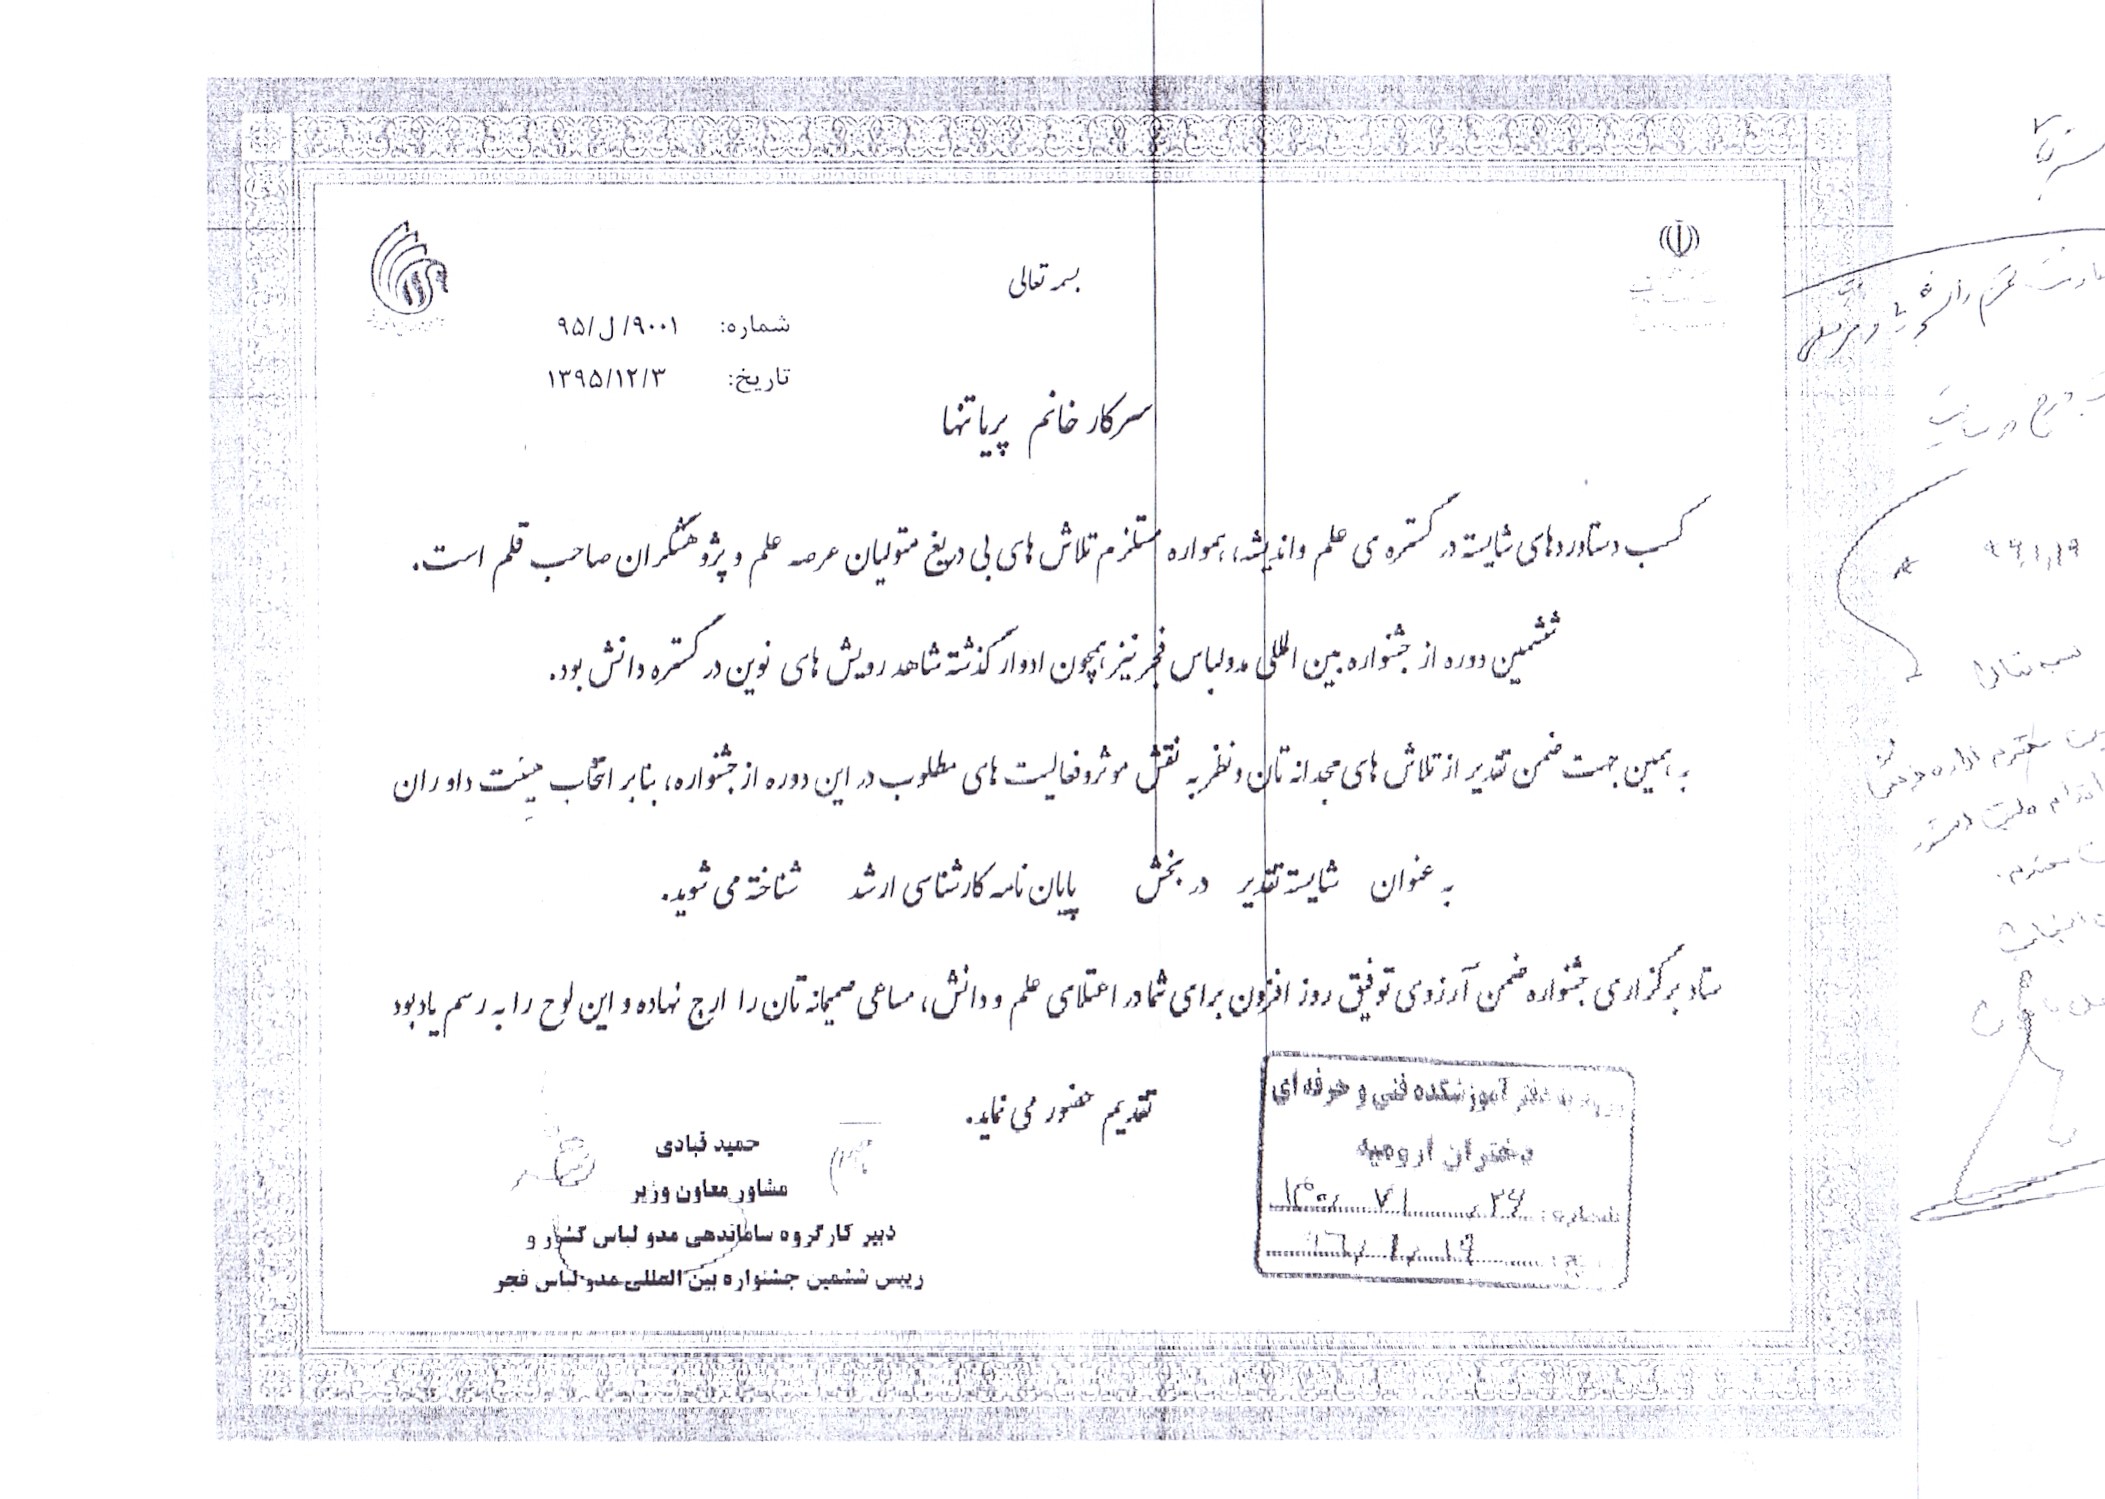 بسمه تعالی
شماره: ۹۰۰۱/ل/۹۵
تاریخ: ۱۳۹۵/۱۲/۳
سرکار خانم پریا تنها
کسب دستاوردهای شایسته در گستره ی علم و اندیشه، همواره مستلزم تلاش های بی دریغ متولیان عرصه علم و پژوهشگران صاحب قلم است.
ششمین دوره از جشنواره بین المللی مد و لباس فجر نیز همچون ادوار گذشته شاهد رویش های نوین در گستره دانش بود.
به همین جهت ضمن تقدیر از تلاش های مجدانه تان و نظر به نقش موثر و فعالیت های مطلوب در این دوره از جشنواره، بنابر انتخاب هیئت داوران
به عنوان شایسته تقدیر در بخش پایان نامه کارشناسی ارشد شناخته می شوید.
ستاد برگزاری جشنواره ضمن آرزوی توفیق روز افزون برای شما در اعتلای علم و دانش، مساعی صمیمانه تان را ارج نهاده و این لوح را به رسم یادبود
تقدیم حضور می نماید.
حمید قبادی
مشاور معاون وزیر
دبیر کارگروه ساماندهی مد و لباس کشور و
رییس ششمین جشنواره بین المللی مد و لباس فجر
دفتر آموزشکده فنی و حرفه ای
دختران ارومیه
شماره:
بسمه تعالی